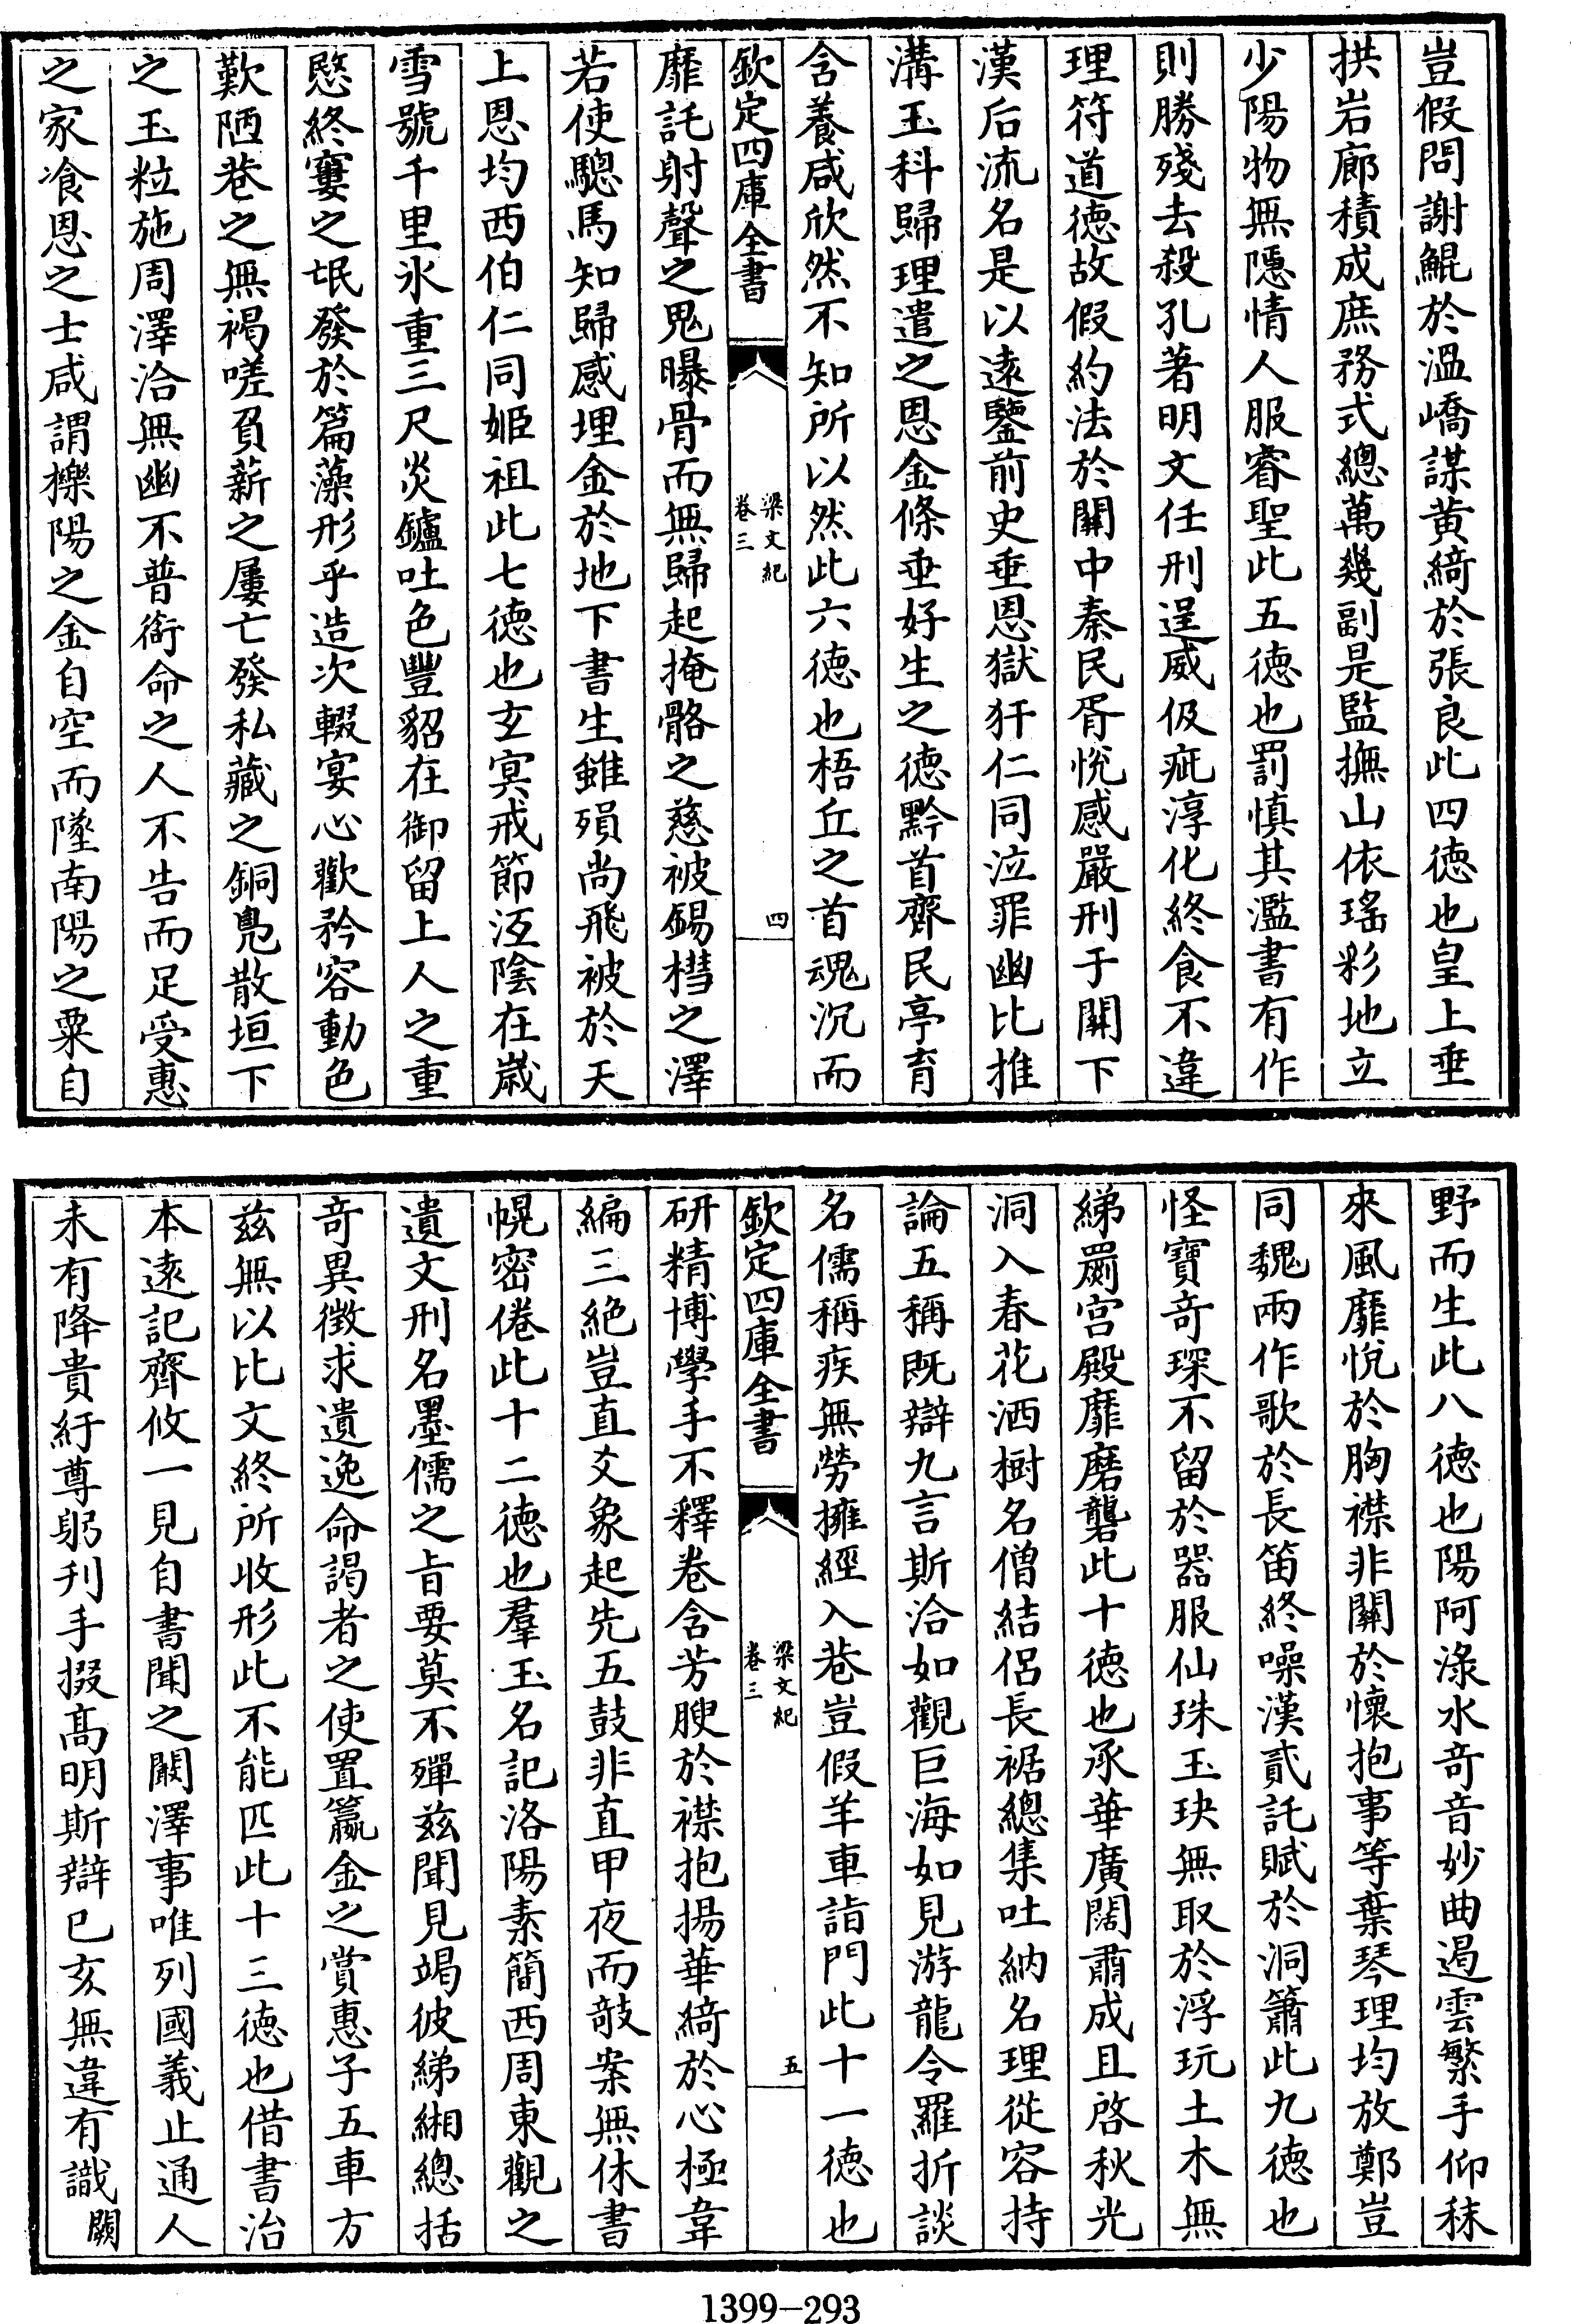 豈假問謝鯤於溫嶠謀黄綺於張良此四徳也皇上垂
拱岩廊積成庶務式總萬幾副是監撫山依瑤彩地立
少陽物無隱情人服睿聖此五徳也罰慎其濫書有作
則勝殘去殺孔著明文任刑逞威伋疵淳化終食不違
理符道徳故假約法於關中秦民胥悅感嚴刑于關下
漢后流名是以遠鑒前史垂恩獄犴仁同泣罪幽比推
溝玉科歸理遣之恩金條垂好生之徳黔首齊民亭育
含養咸欣然不知所以然此六徳也梧丘之首魂沉而
欽定四庫全書
梁文紀
卷三
四
靡託射聲之鬼曝骨而無歸起掩骼之慈被錫槥之澤
若使驄馬知歸感埋金於地下書生雖殞尚飛被於天
上恩均西伯仁同姬祖此七徳也玄㝠戒節沍陰在嵗
雪號千里氷重三尺炎鑪吐色豐貂在御留上人之重
愍終窶之氓發於篇藻形乎造次輟宴心歡矜容動色
歎陋巷之無褐嗟負薪之屢亡發私藏之銅鳬散垣下
之玉粒施周澤洽無幽不普銜命之人不告而足受惠
之家飡恩之士咸謂櫟陽之金自空而墜南陽之粟自
野而生此八徳也陽阿淥水奇音妙曲遏雲繁手仰秣
來風靡悅於胸襟非關於懷抱事等棄琴理均放鄭豈
同魏兩作歌於長笛終噪漢貳託賦於洞簫此九徳也
怪寶竒琛不留於器服仙珠玉玦無取於浮玩土木無
綈罽宫殿靡磨礱此十徳也承華廣闊肅成且啓秋光
洞入春花洒樹名僧結侶長裾總集吐納名理從容持
論五稱既辯九言斯洽如觀巨海如見游龍令羅折談
名儒稱疾無勞擁經入巷豈假羊車詣門此十一徳也
欽定四庫全書
梁文紀
卷三
五
研精博學手不釋卷含芳腴於襟抱揚華綺於心極韋
編三絶豈直爻象起先五鼓非直甲夜而敧案無休書
幌密倦此十二徳也羣玉名記洛陽素簡西周東觀之
遺文刑名墨儒之旨要莫不殫兹聞見竭彼綈緗總括
竒異徴求遺逸命謁者之使置籝金之賞惠子五車方
兹無以比文終所收形此不能匹此十三徳也借書治
本遠記齊攸一見自書聞之闞澤事唯列國義止通人
未有降貴紆尊躬刋手掇髙明斯辯已亥無違有識闕
1399-293